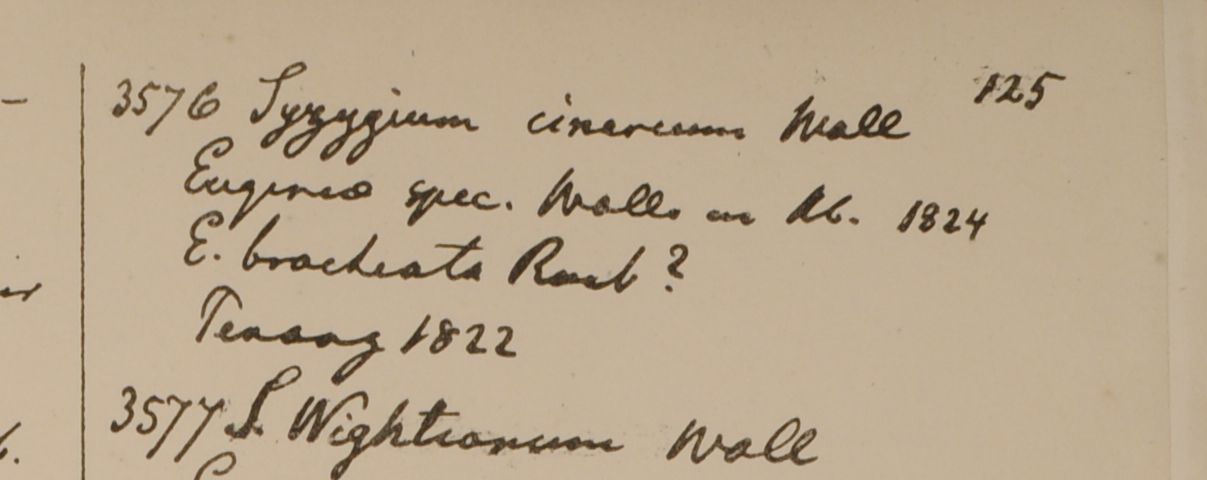 125
3576 Syzygium cinereum Wall
Eugenia spec. Wall. in
1824
E. bracteata Roxb ?
Penang 1822
3577 S. Wightianum Wall